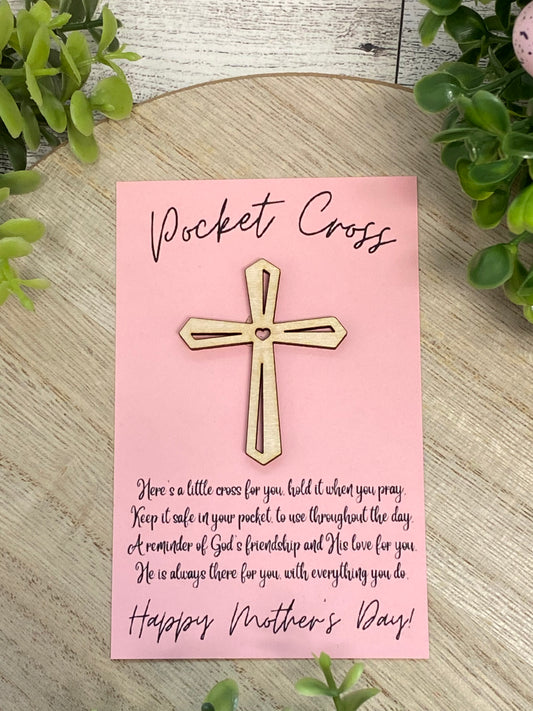 Pocket Cross
Here's a little cross for you, hold it when you pray.
Keep it safe in your pocket, to use throughout the day.
A reminder of God's friendship and His love for you.
He is always there for you, with everything you do.
Happy Mother's Day!